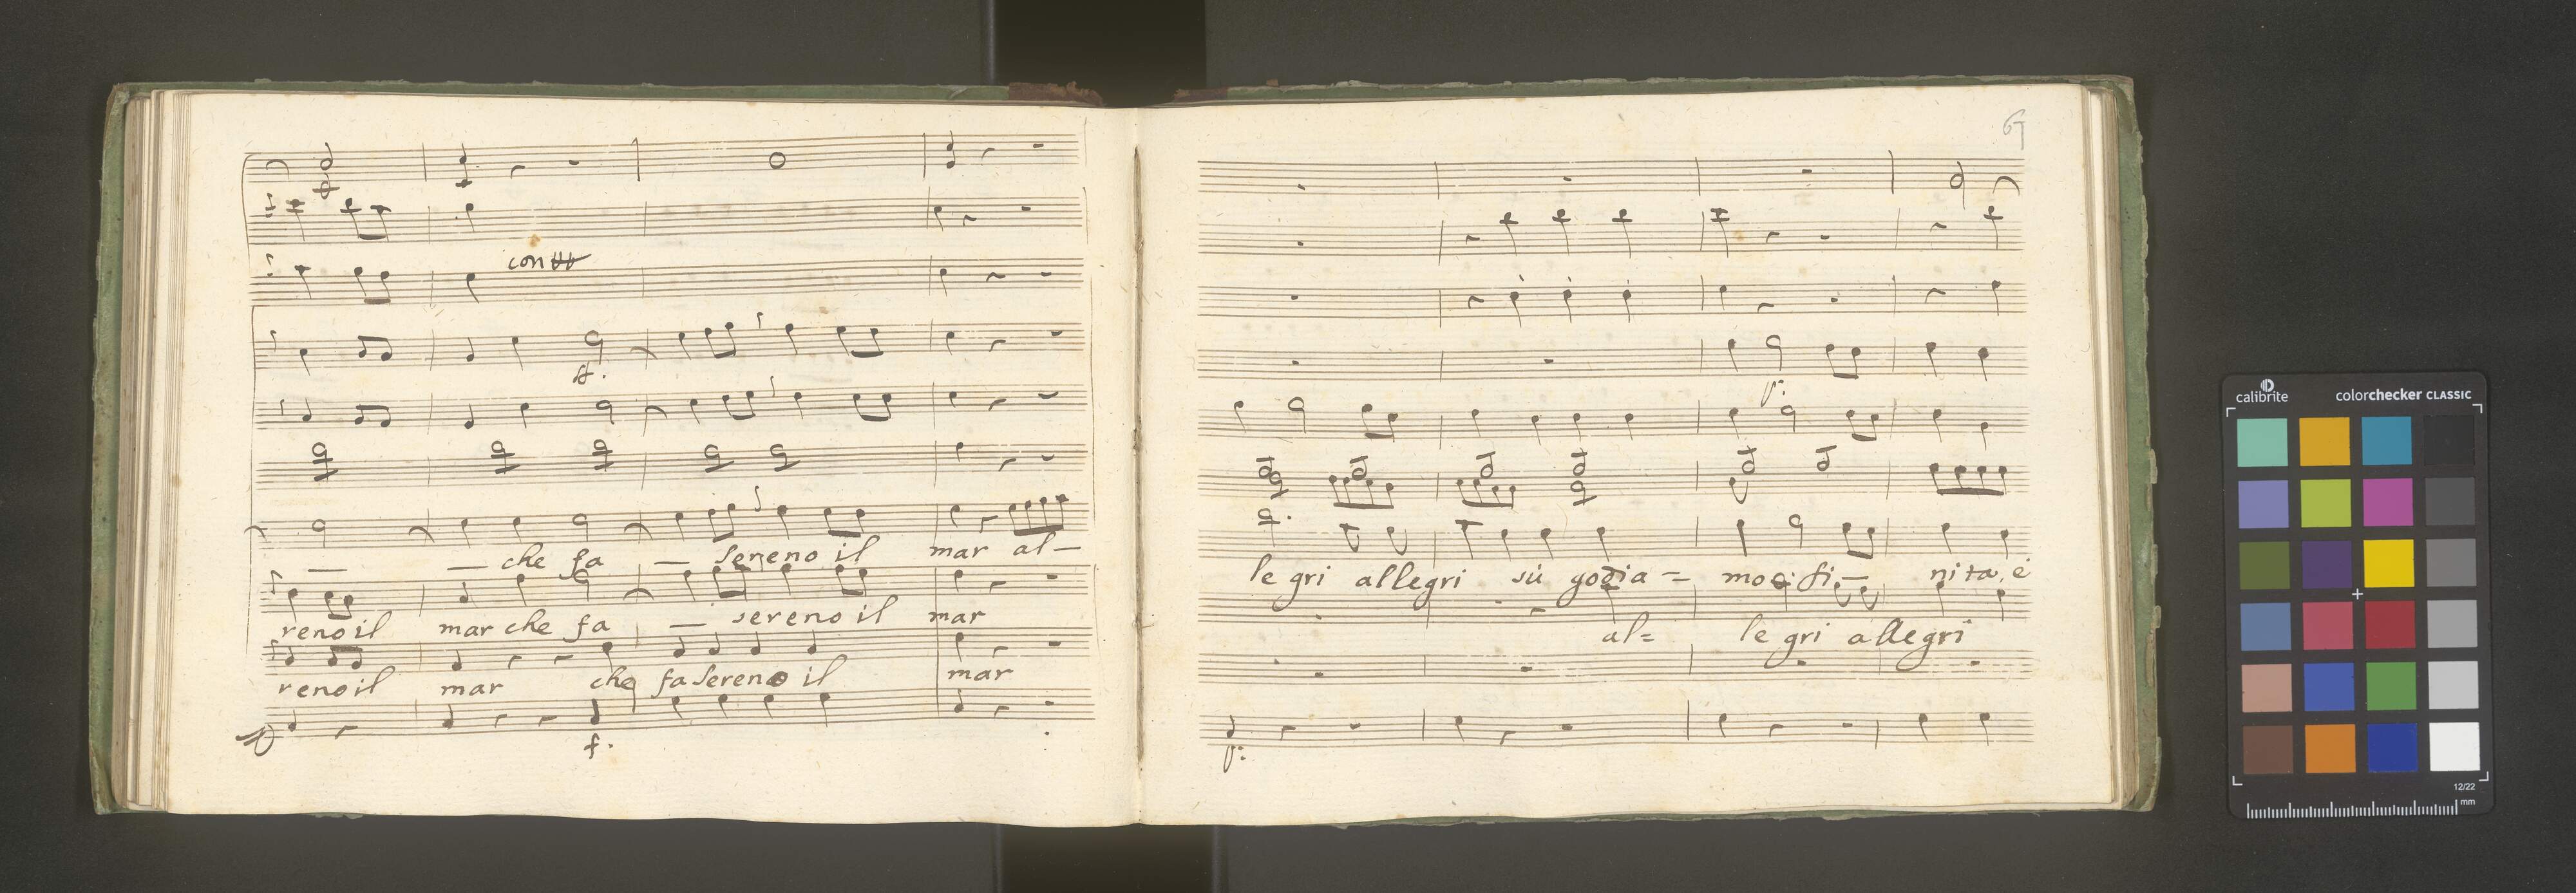 con
f.
— — che fa — sereno il mar al—
reno il mar che fa — sereno il mar
reno il mar che fa sereno il mar
f.
67
p:
le gri allegri sù godia = mo è fi— nita, e
al= le gri allegri
p:
calibrite colorchecker CLASSIC
12/22
mm